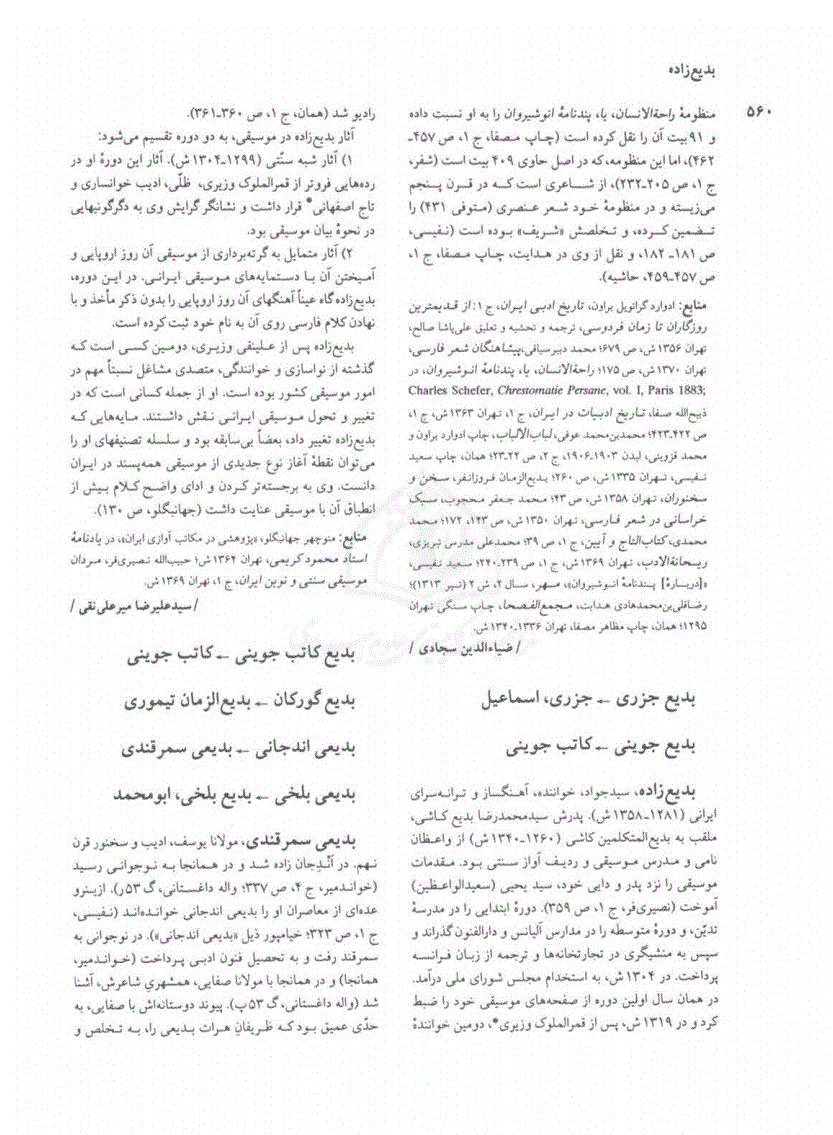 بدیع‌زاده
۵۶۰
منظومهٔ راحة‌الانسان، یا، پندنامهٔ انوشیروان را به او نسبت داده
و ۹۱ بیت آن را نقل کرده است (چاپ مصفا، ج ۱، ص ۴۵۷ـ
۴۶۲)، اما این منظومه، که در اصل حاوی ۴۰۹ بیت است (شفر،
ج ۱، ص ۲۰۵ـ۲۳۲)، از شاعری است که در قرن پنجم
می‌زیسته و در منظومهٔ خود شعر عنصری (متوفی ۴۳۱) را
تضمین کرده، و تخلصش «شریف» بوده است (نفیسی،
ص ۱۸۱ـ ۱۸۲، و نقل از وی در هدایت، چاپ مصفا، ج ۱،
ص ۴۵۷ـ۴۵۹، حاشیه).
منابع: ادوارد گرانویل براون، تاریخ ادبی ایران، ج ۱: از قدیمترین
روزگاران تا زمان فردوسی، ترجمه و تحشیه و تعلیق علی‌پاشا صالح،
تهران ۱۳۵۶ ش، ص ۶۷۹؛ محمد دبیرسیاقی، پیشاهنگان شعر فارسی،
تهران ۱۳۷۰ ش، ص ۱۷۵؛ راحة‌الانسان، یا، پندنامهٔ انوشیروان، در
Charles Schefer, Chrestomatie Persane, vol. I, Paris 1883;
ذبیح‌الله صفا، تاریخ ادبیات در ایران، ج ۱، تهران ۱۳۶۳ ش، ج ۱،
ص ۴۲۲ـ۴۲۳؛ محمدبن‌محمد عوفی، لباب‌الالباب، چاپ ادوارد براون و
محمد قزوینی، لیدن ۱۹۰۳ـ۱۹۰۶، ج ۲، ص ۲۲ـ۲۳؛ همان، چاپ سعید
نفیسی، تهران ۱۳۳۵ ش، ص ۲۶۰؛ بدیع‌الزمان فروزانفر، سخن و
سخنوران، تهران ۱۳۵۸ ش، ص ۴۳؛ محمد جعفر محجوب، سبک
خراسانی در شعر فارسی، تهران ۱۳۵۰ ش، ص ۱۴۳، ۱۷۲؛ محمد
محمدی، کتاب‌التاج و آیین، ج ۱، ص ۳۹؛ محمدعلی مدرس تبریزی،
ریحانة‌الادب، تهران ۱۳۶۹ ش، ج ۱، ص ۲۳۹ـ۲۴۰؛ سعید نفیسی،
«[دربارهٔ] پندنامهٔ انوشیروان»، مهر، سال ۲، ش ۲ (تیر ۱۳۱۳)؛
رضاقلی‌بن‌محمدهادی هدایت، مجمع‌الفصحا، چاپ سنگی تهران
۱۲۹۵؛ همان، چاپ مظاهر مصفا، تهران ۱۳۳۶ـ۱۳۴۰ ش.
/ ضیاءالدین سجادی /
بدیع جزری ← جزری، اسماعیل
بدیع جوینی ← کاتب جوینی
بدیع‌زاده، سیدجواد، خواننده، آهنگساز و ترانه‌سرای
ایرانی (۱۲۸۱ـ۱۳۵۸ ش). پدرش سیدمحمدرضا بدیع کاشی،
ملقب به بدیع‌المتکلمین کاشی (۱۲۶۰ـ۱۳۴۰ ش) از واعظان
نامی و مدرس موسیقی و ردیف آواز سنتی بود. مقدمات
موسیقی را نزد پدر و دایی خود، سید یحیی (سعیدالواعظین)
آموخت (نصیری‌فر، ج ۱، ص ۳۵۹). دورهٔ ابتدایی را در مدرسهٔ
تدیّن، و دورهٔ متوسطه را در مدارس آلیانس و دارالفنون گذراند و
سپس به منشیگری در تجارتخانه‌ها و ترجمه از زبان فرانسه
پرداخت. در ۱۳۰۴ ش، به استخدام مجلس شورای ملی درآمد.
در همان سال اولین دوره از صفحه‌های موسیقی خود را ضبط
کرد و در ۱۳۱۹ ش، پس از قمرالملوک وزیری*، دومین خوانندهٔ
رادیو شد (همان، ج ۱، ص ۳۶۰ـ۳۶۱).
آثار بدیع‌زاده در موسیقی، به دو دوره تقسیم می‌شود:
۱) آثار شبه سنّتی (۱۲۹۹ـ۱۳۰۴ ش). آثار این دورهٔ او در
رده‌هایی فروتر از قمرالملوک وزیری، ظلّی، ادیب خوانساری و
تاج اصفهانی* قرار داشت و نشانگر گرایش وی به دگرگونیهایی
در نحوهٔ بیان موسیقی بود.
۲) آثار متمایل به گرته‌برداری از موسیقی آن روز اروپایی و
آمیختن آن با دستمایه‌های موسیقی ایرانی. در این دوره،
بدیع‌زاده گاه عیناً آهنگهای آن روز اروپایی را بدون ذکر مأخذ و با
نهادن کلام فارسی روی آن به نام خود ثبت کرده است.
بدیع‌زاده پس از علینقی وزیری، دومین کسی است که
گذشته از نواسازی و خوانندگی، متصدی مشاغل نسبتاً مهم در
امور موسیقی کشور بوده است. او از جمله کسانی است که در
تغییر و تحول موسیقی ایرانی نقش داشتند. مایه‌هایی که
بدیع‌زاده تغییر داد، بعضاً بی‌سابقه بود و سلسله تصنیفهای او را
می‌توان نقطهٔ آغاز نوع جدیدی از موسیقی همه‌پسند در ایران
دانست. وی به برجسته‌تر کردن و ادای واضح کلام بیش از
انطباق آن با موسیقی عنایت داشت (جهانبگلو، ص ۱۳۰).
منابع: منوچهر جهانبگلو، «پژوهشی در مکاتب آوازی ایران»، در یادنامهٔ
استاد محمود کریمی، تهران ۱۳۶۴ ش؛ حبیب‌الله نصیری‌فر، مردان
موسیقی سنتی و نوین ایران، ج ۱، تهران ۱۳۶۹ ش.
/ سیدعلیرضا میرعلی‌نقی /
بدیع کاتب جوینی ← کاتب جوینی
بدیع گورکان ← بدیع‌الزمان تیموری
بدیعی اندجانی ← بدیعی سمرقندی
بدیعی بلخی ← بدیع بلخی، ابومحمد
بدیعی سمرقندی، مولانا یوسف، ادیب و سخنور قرن
نهم. در اَنْدِجان زاده شد و در همانجا به نوجوانی رسید
(خواندمیر، ج ۴، ص ۳۳۷؛ واله داغستانی، گ ۵۳ ر). ازینرو
عده‌ای از معاصران او را بدیعی اندجانی خوانده‌اند (نفیسی،
ج ۱، ص ۳۲۳؛ خیامپور ذیل «بدیعی اندجانی»). در نوجوانی به
سمرقند رفت و به تحصیل فنون ادبی پرداخت (خواندمیر،
همانجا) و در همانجا با مولانا صفایی، همشهریِ شاعرش، آشنا
شد (واله داغستانی، گ ۵۳ پ). پیوند دوستانه‌اش با صفایی، به
حدّی عمیق بود که ظریفانِ هرات بدیعی را، به تخلص و